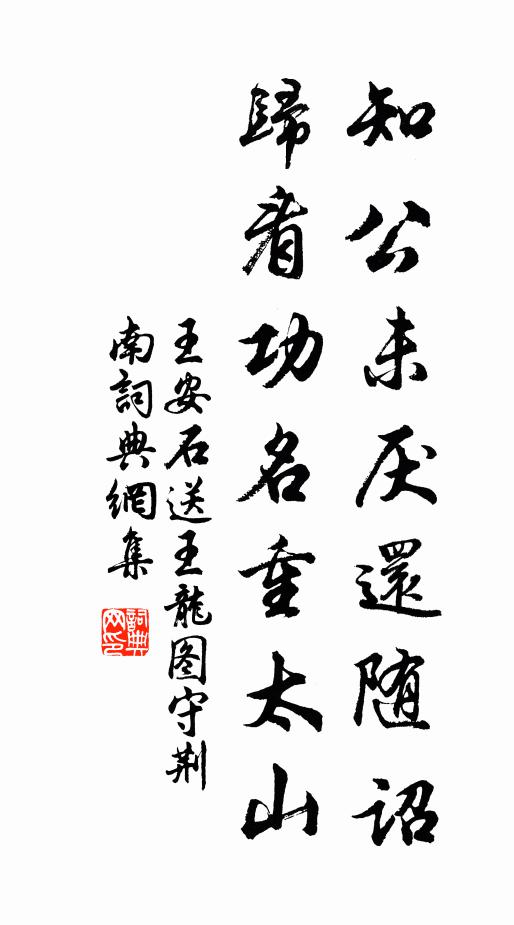 知公未厌還随詔
歸看功名重太山
王安石送王龍图守荆
南詞典網集
詞典
网印